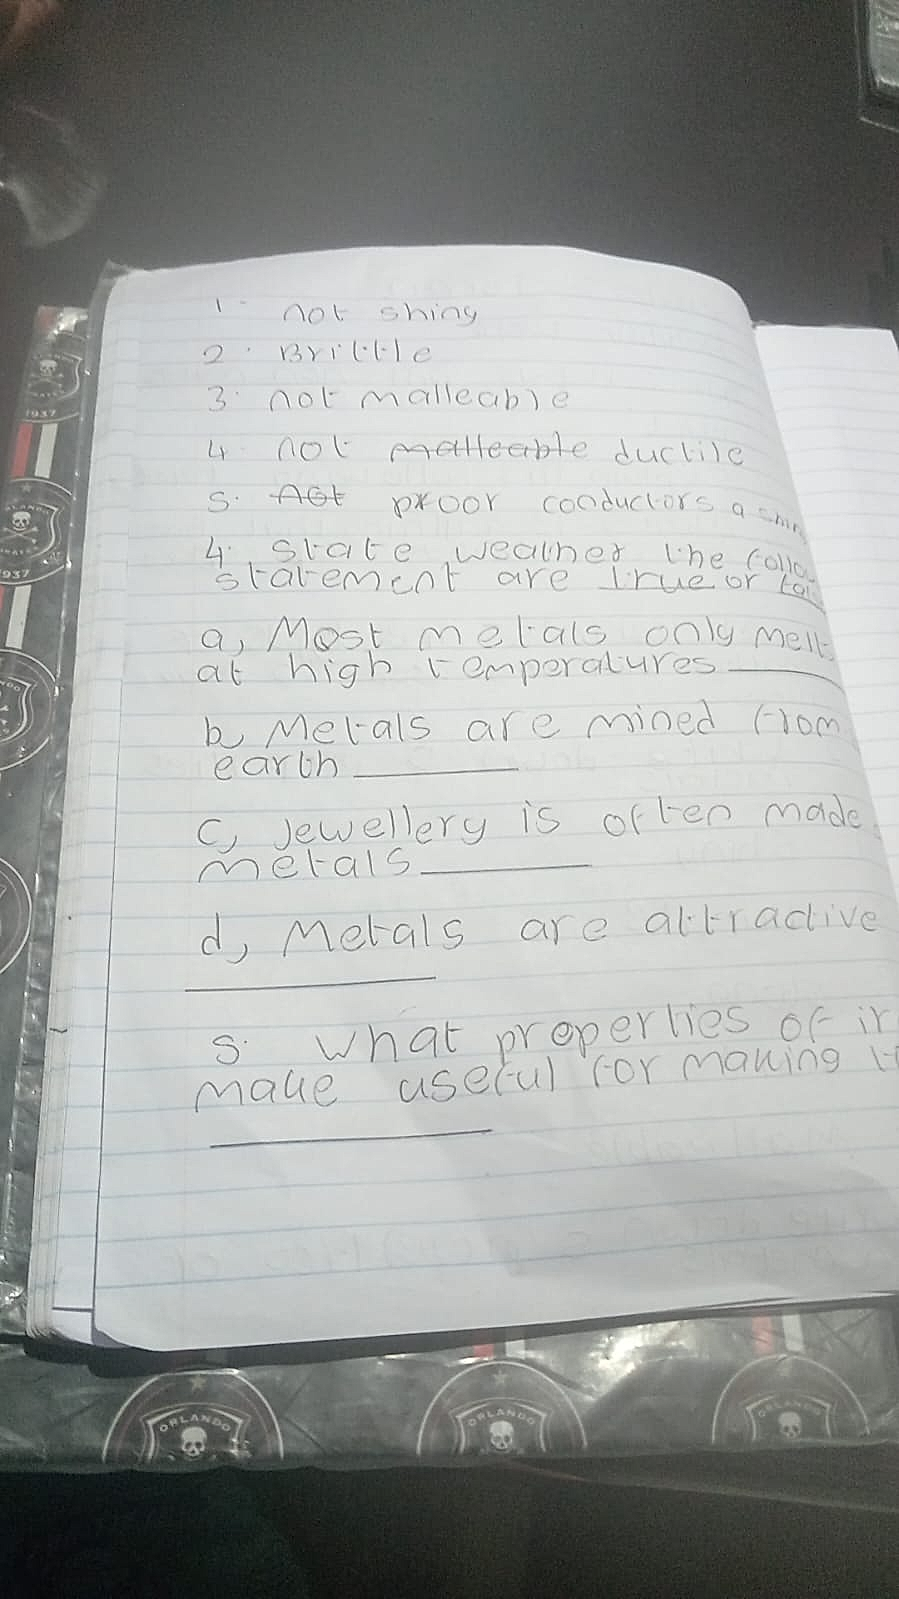 1. not shing
2. Brittle
3. not malleable
4. not malleable ductile
5. not poor conductors
4. State weather the
statement are true or
a, Most metals only melt
at high temperatures
b, Metals are mined from
earth
c, Jewellery is often made
metals
d, Metals are attractive
5. What properties of
make useful for making
1937
1937
ORLANDO
ORLANDO
ORLANDO